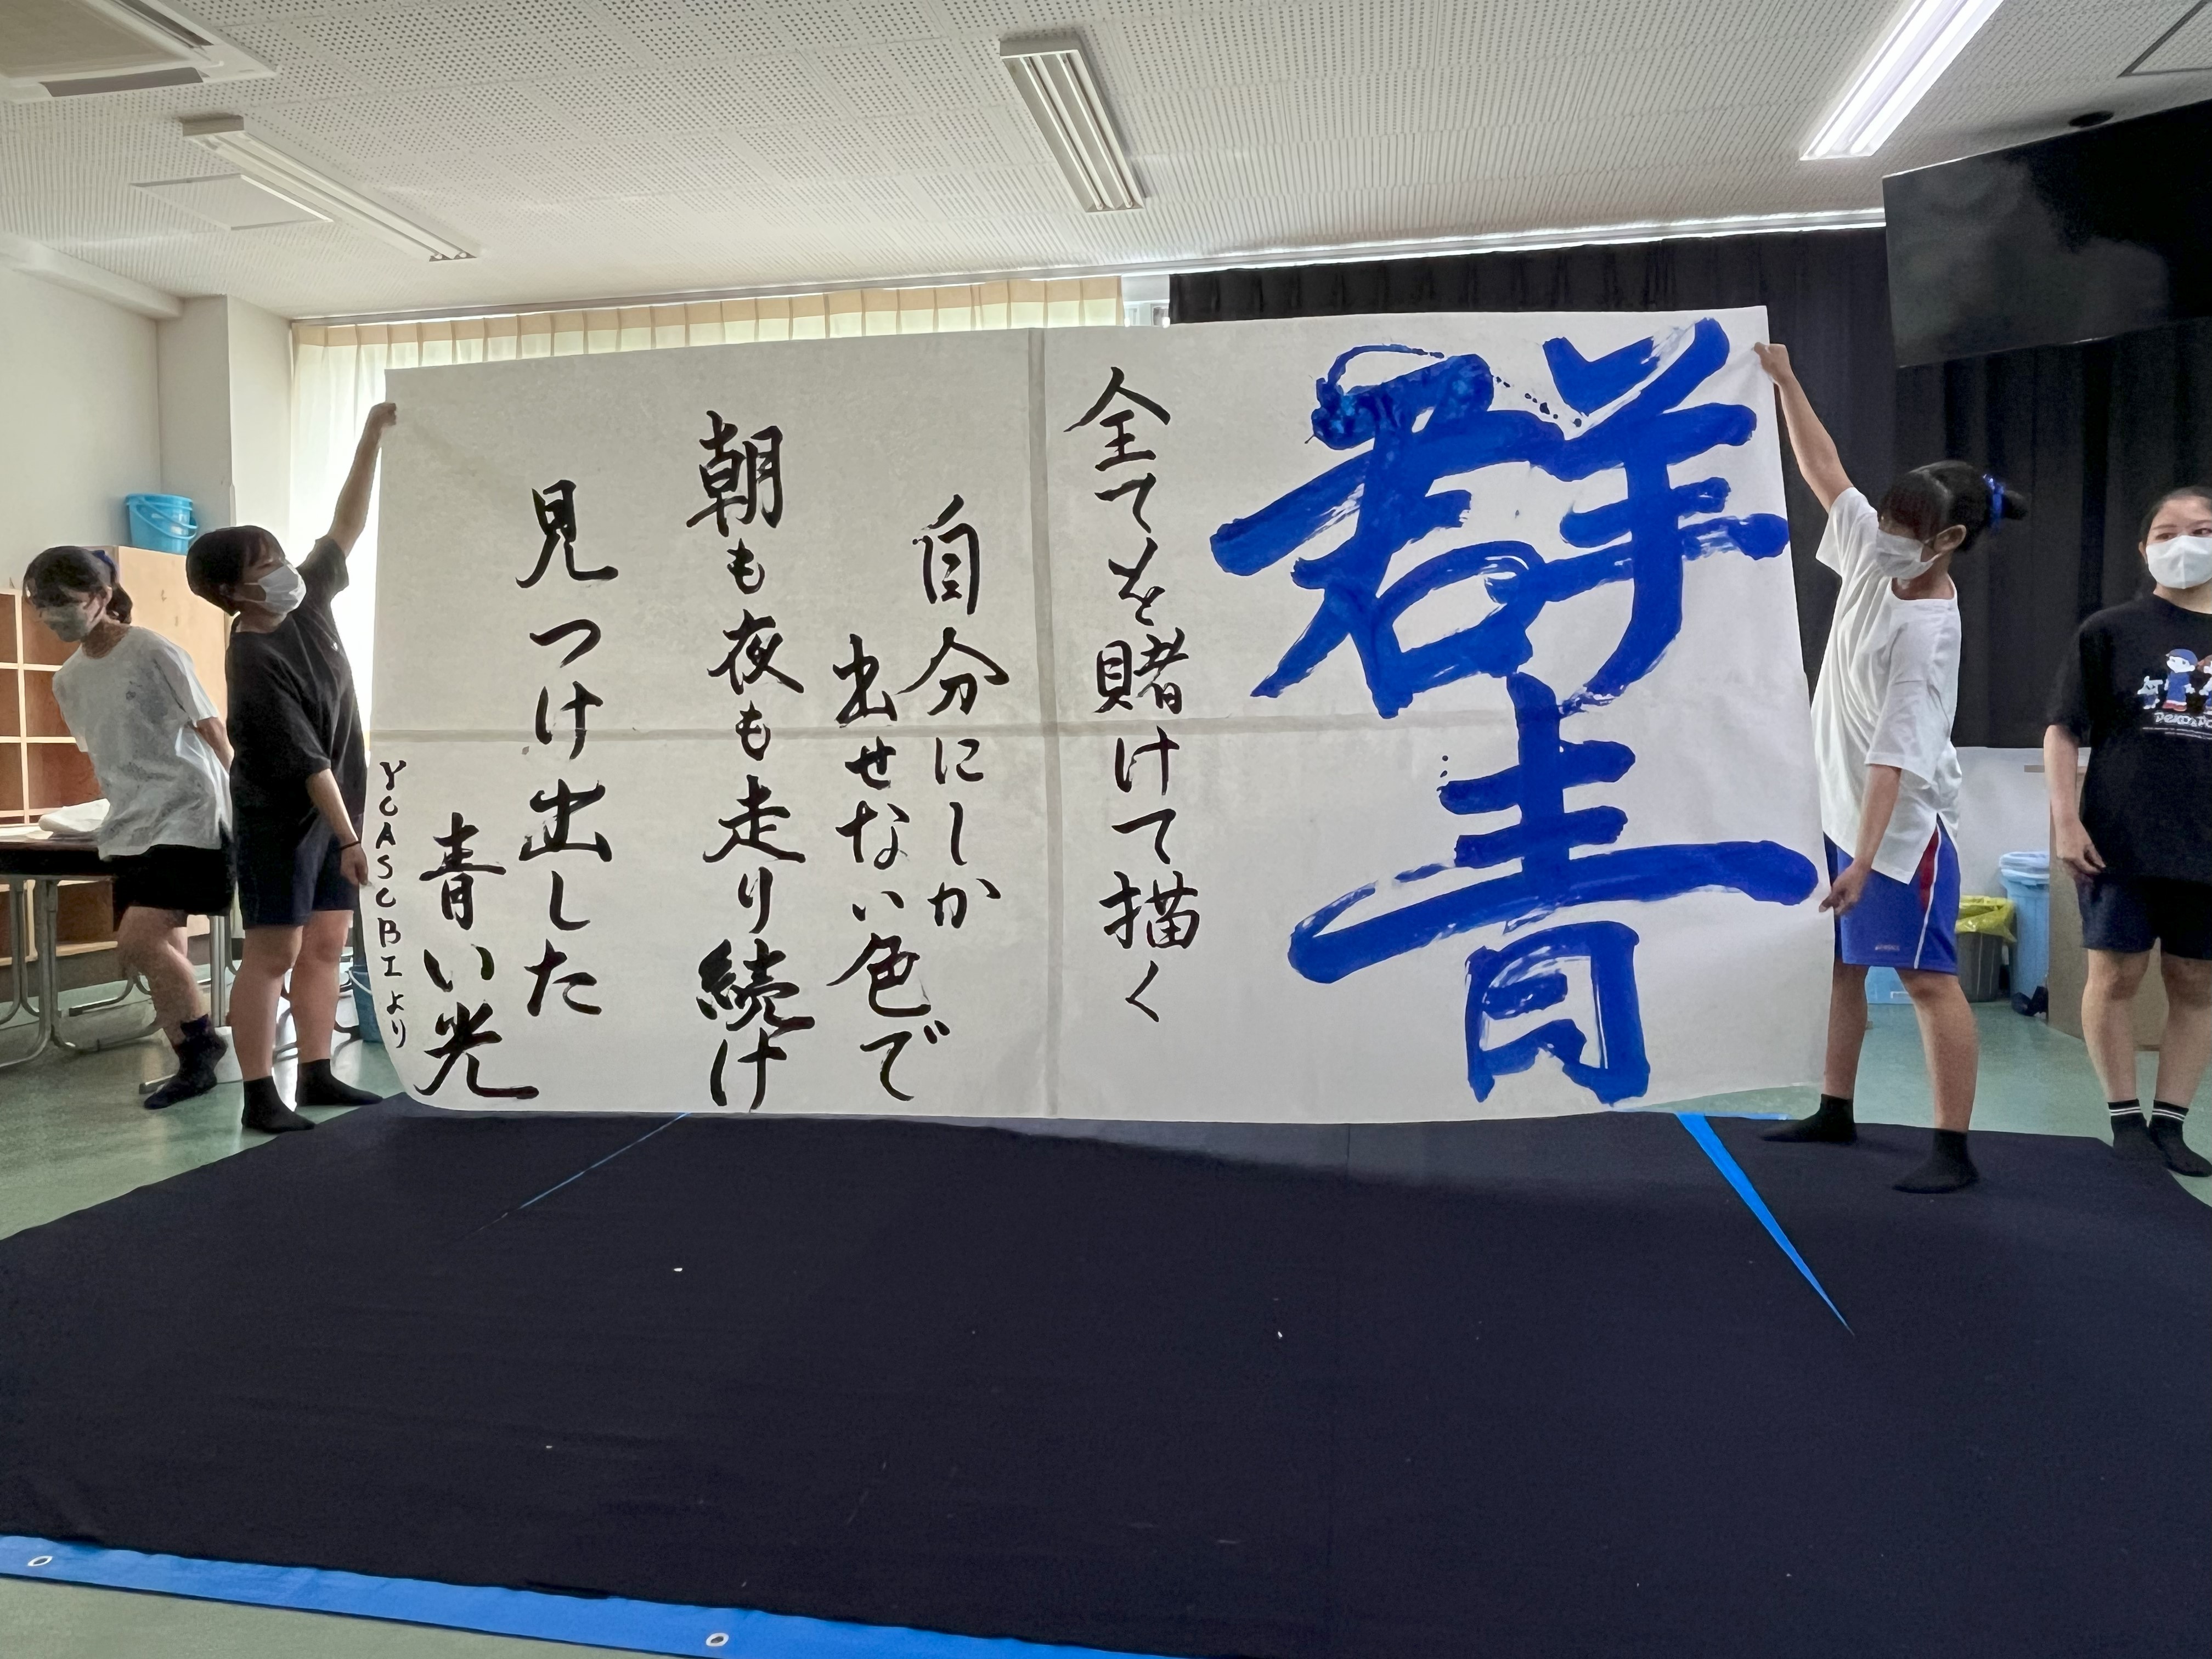 群青
全てを賭けて描く
自分にしか
出せない色で
朝も夜も走り続け
見つけ出した
青い光
YOASOBIより